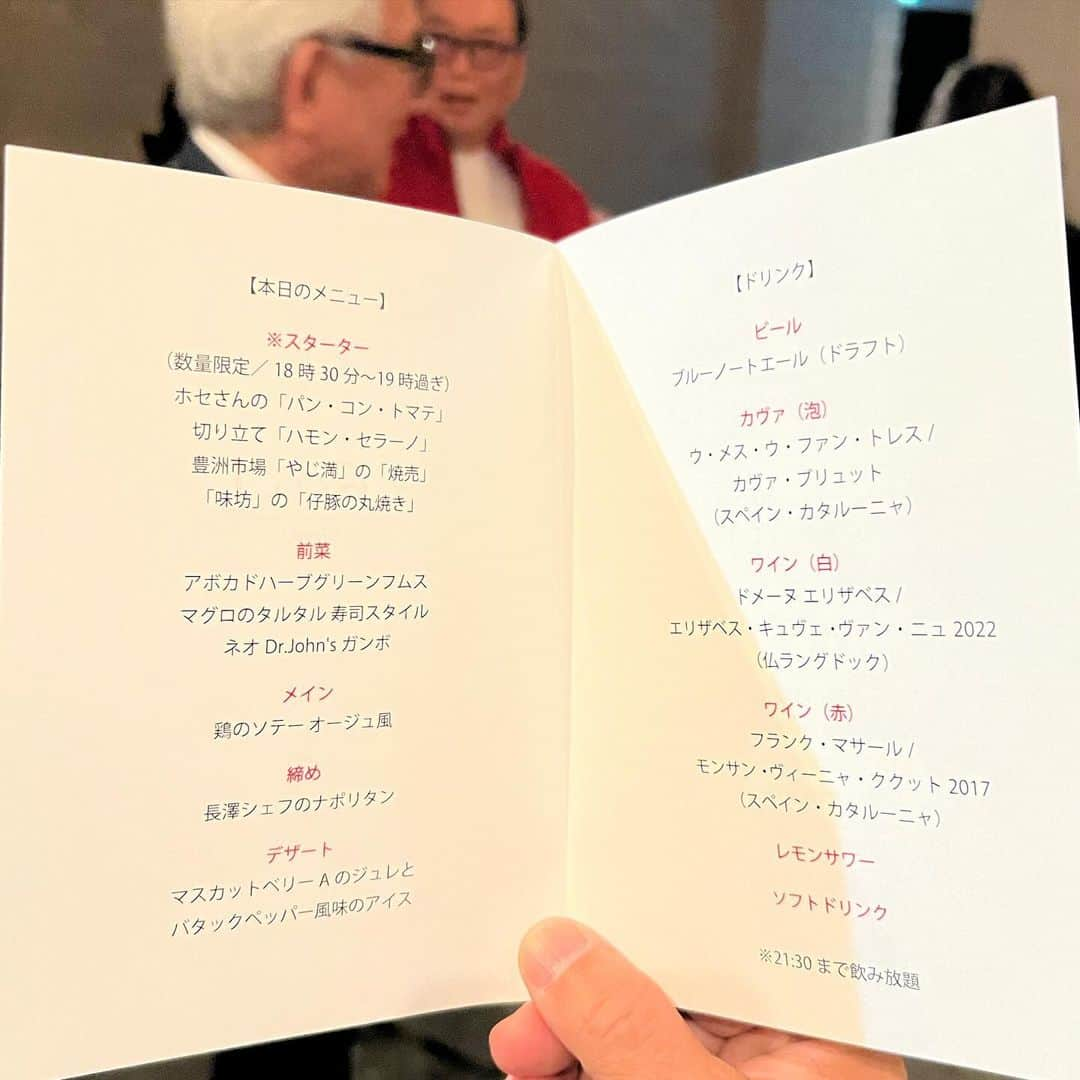 【本日のメニュー】
※スターター
(数量限定／18時30分〜19時過ぎ)
ホセさんの「パン・コン・トマテ」
切り立て「ハモン・セラーノ」
豊洲市場「やじ満」の「焼売」
「味坊」の「仔豚の丸焼き」
前菜
アボカドハーブグリーンフムス
マグロのタルタル 寿司スタイル
ネオ Dr.John's ガンボ
メイン
鶏のソテー オージュ風
締め
長澤シェフのナポリタン
デザート
マスカットベリー A のジュレと
バタックペッパー風味のアイス
【ドリンク】
ビール
ブルーノートエール（ドラフト）
カヴァ（泡）
ウ・メス・ウ・ファン・トレス /
カヴァ・ブリュット
（スペイン・カタルーニャ）
ワイン（白）
ドメーヌ エリザベス /
エリザベス・キュヴェ・ヴァン・ニュ 2022
（仏ラングドック）
ワイン（赤）
フランク・マサール /
モンサン・ヴィーニャ・ククット 2017
（スペイン・カタルーニャ）
レモンサワー
ソフトドリンク
※21:30 まで飲み放題